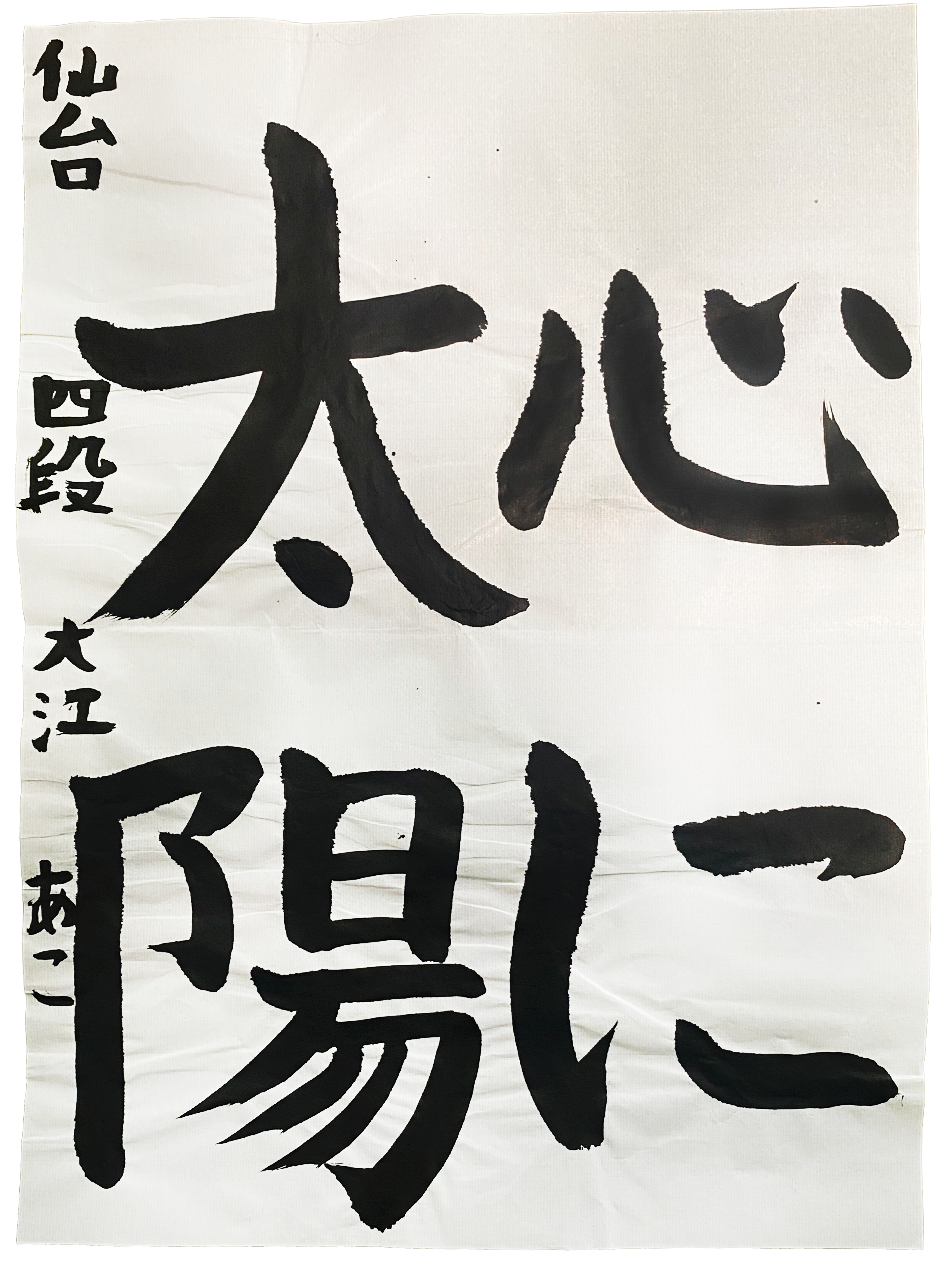 心に
太陽
仙台 四段 大江 あこ